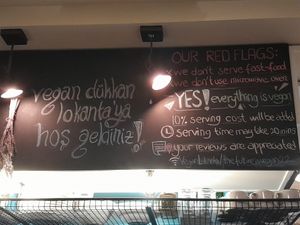 vegan dükkan
lokanta'ya
hoş geldiniz!
OUR RED FLAGS:
we don't serve fast-food
we don't use microwave oven
YES! everything is vegan
10% serving cost will be added
serving time may take 30 mins
your reviews are appreciated